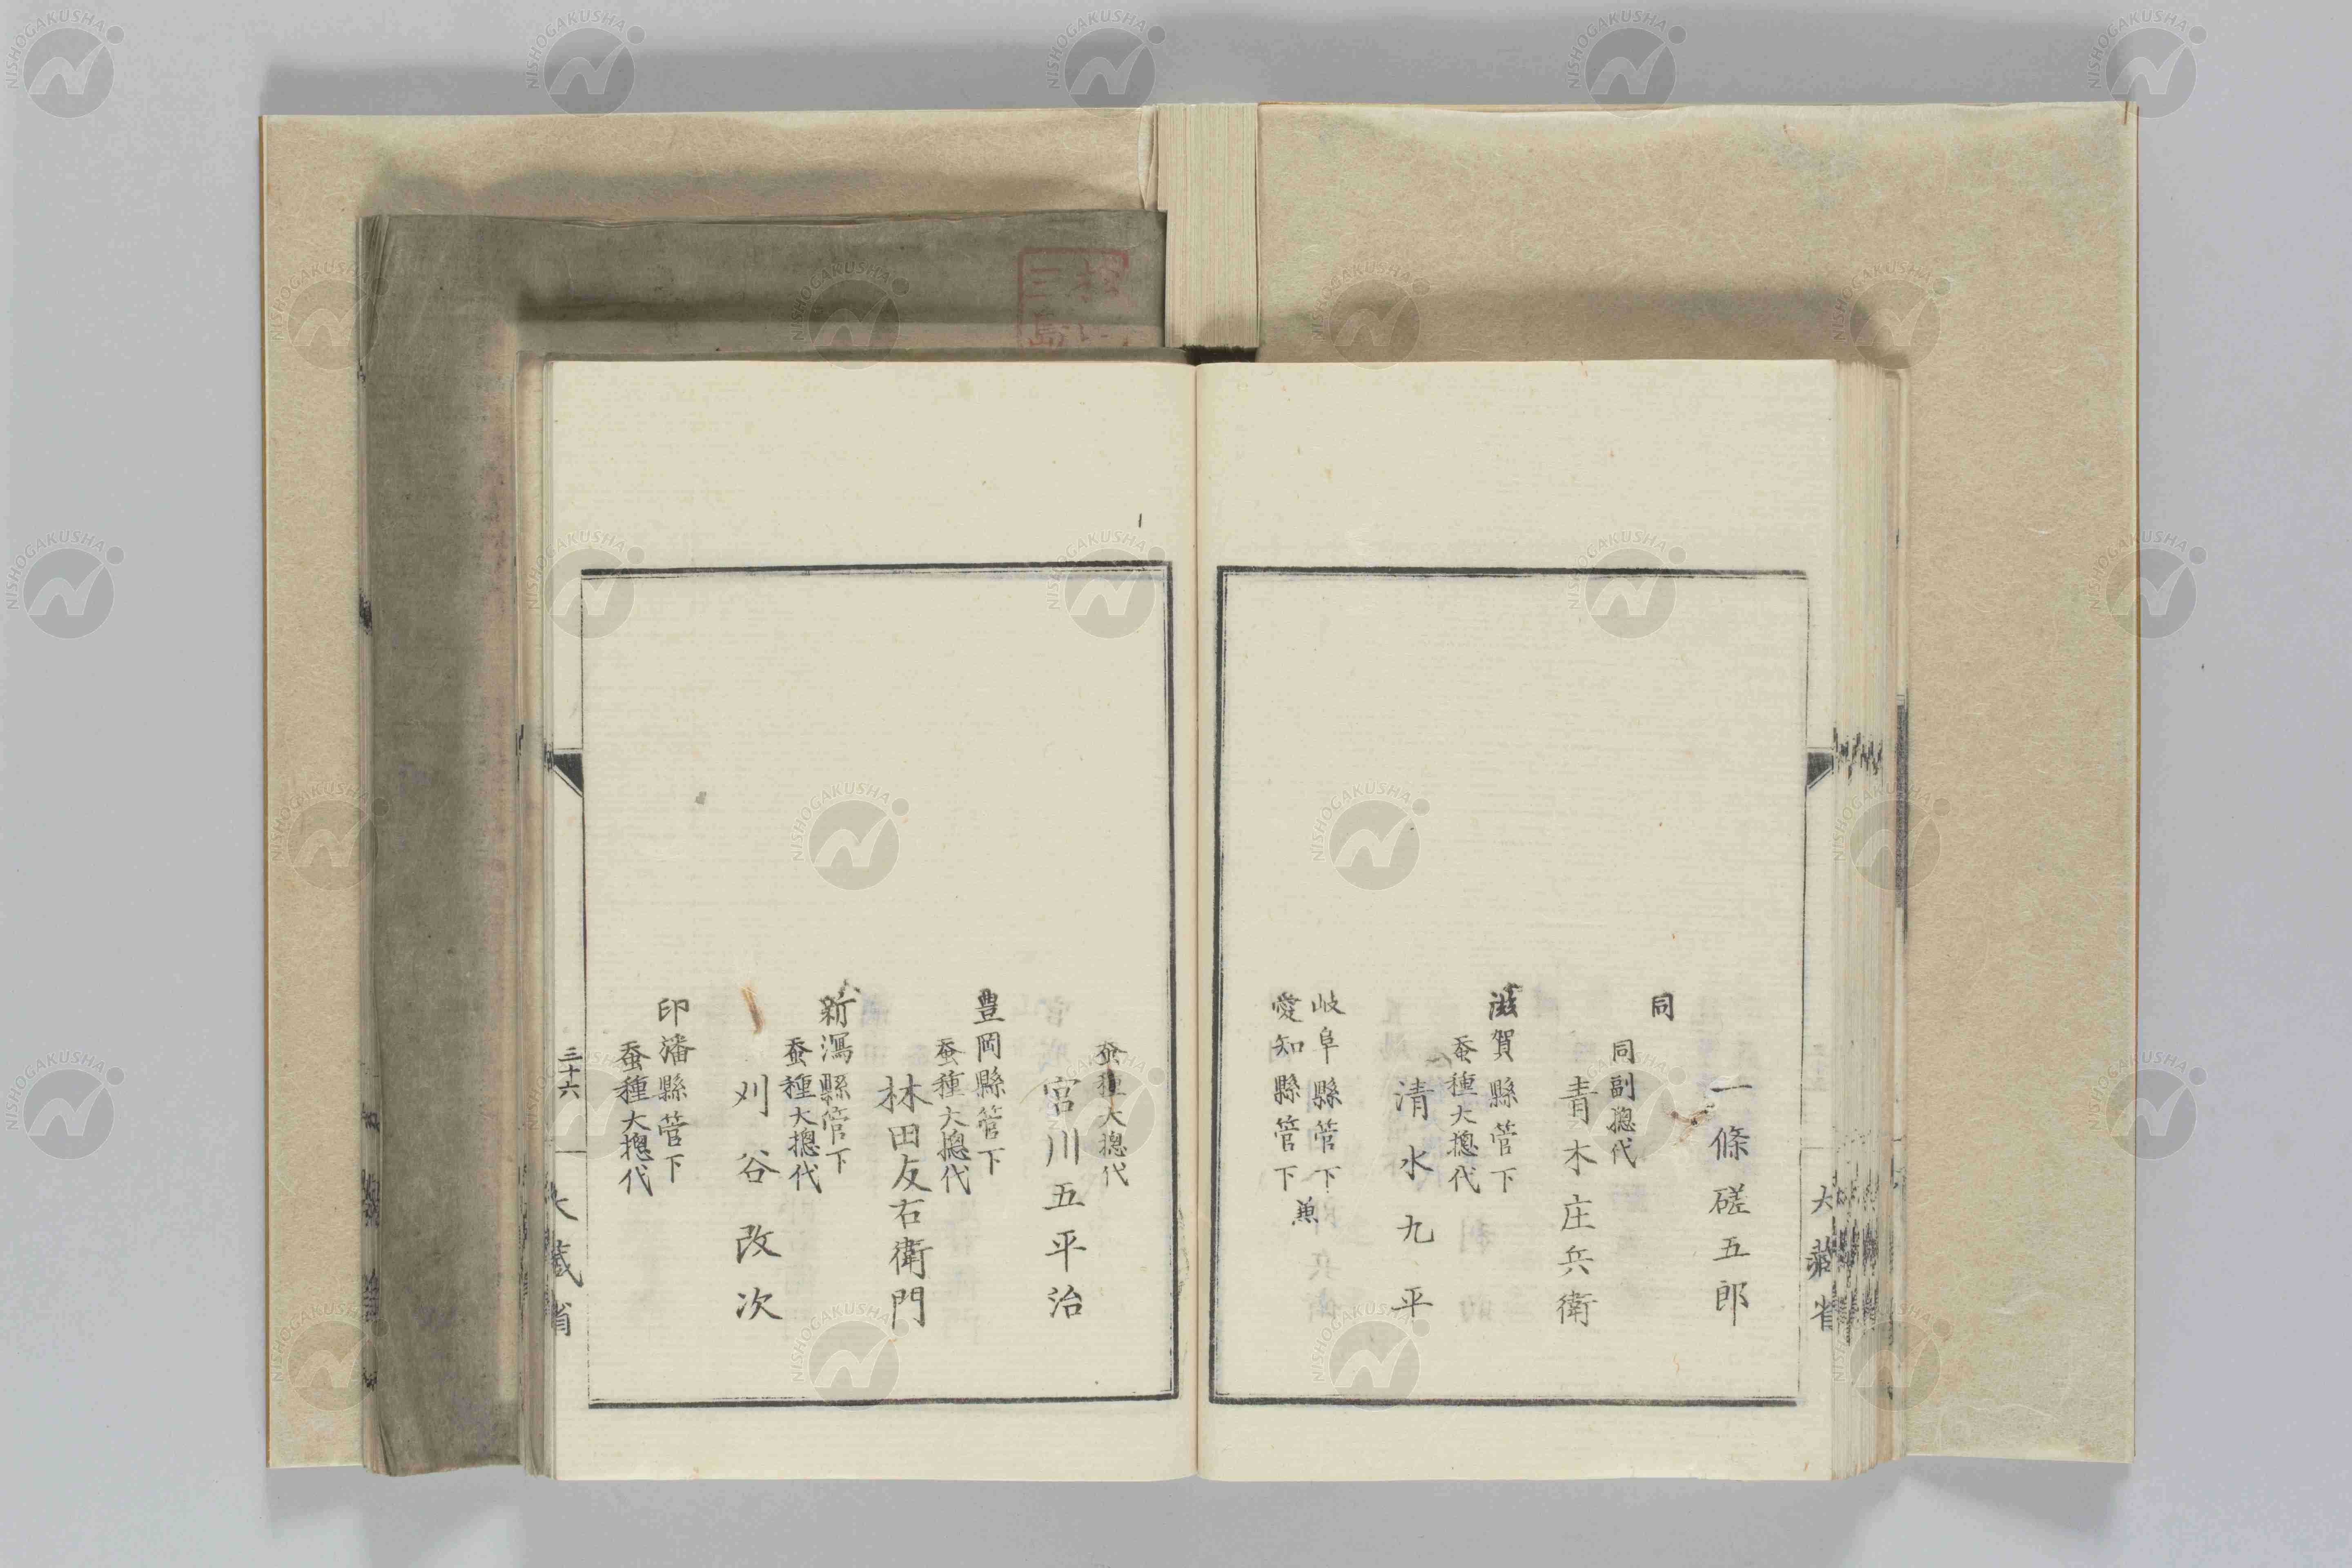 一條磋五郎
同
同副摠代
青木庄兵衛
滋賀縣管下
蚕種大摠代
清水九平
岐阜縣管下
愛知縣管下
兼
蚕種大摠代
宮川五平治
豊岡縣管下
蚕種大摠代
林田友右衛門
新潟縣管下
蚕種大摠代
刈谷改次
印旛縣管下
蚕種大摠代
三十六
大藏省
大藏省
NISHOGAKUSHA